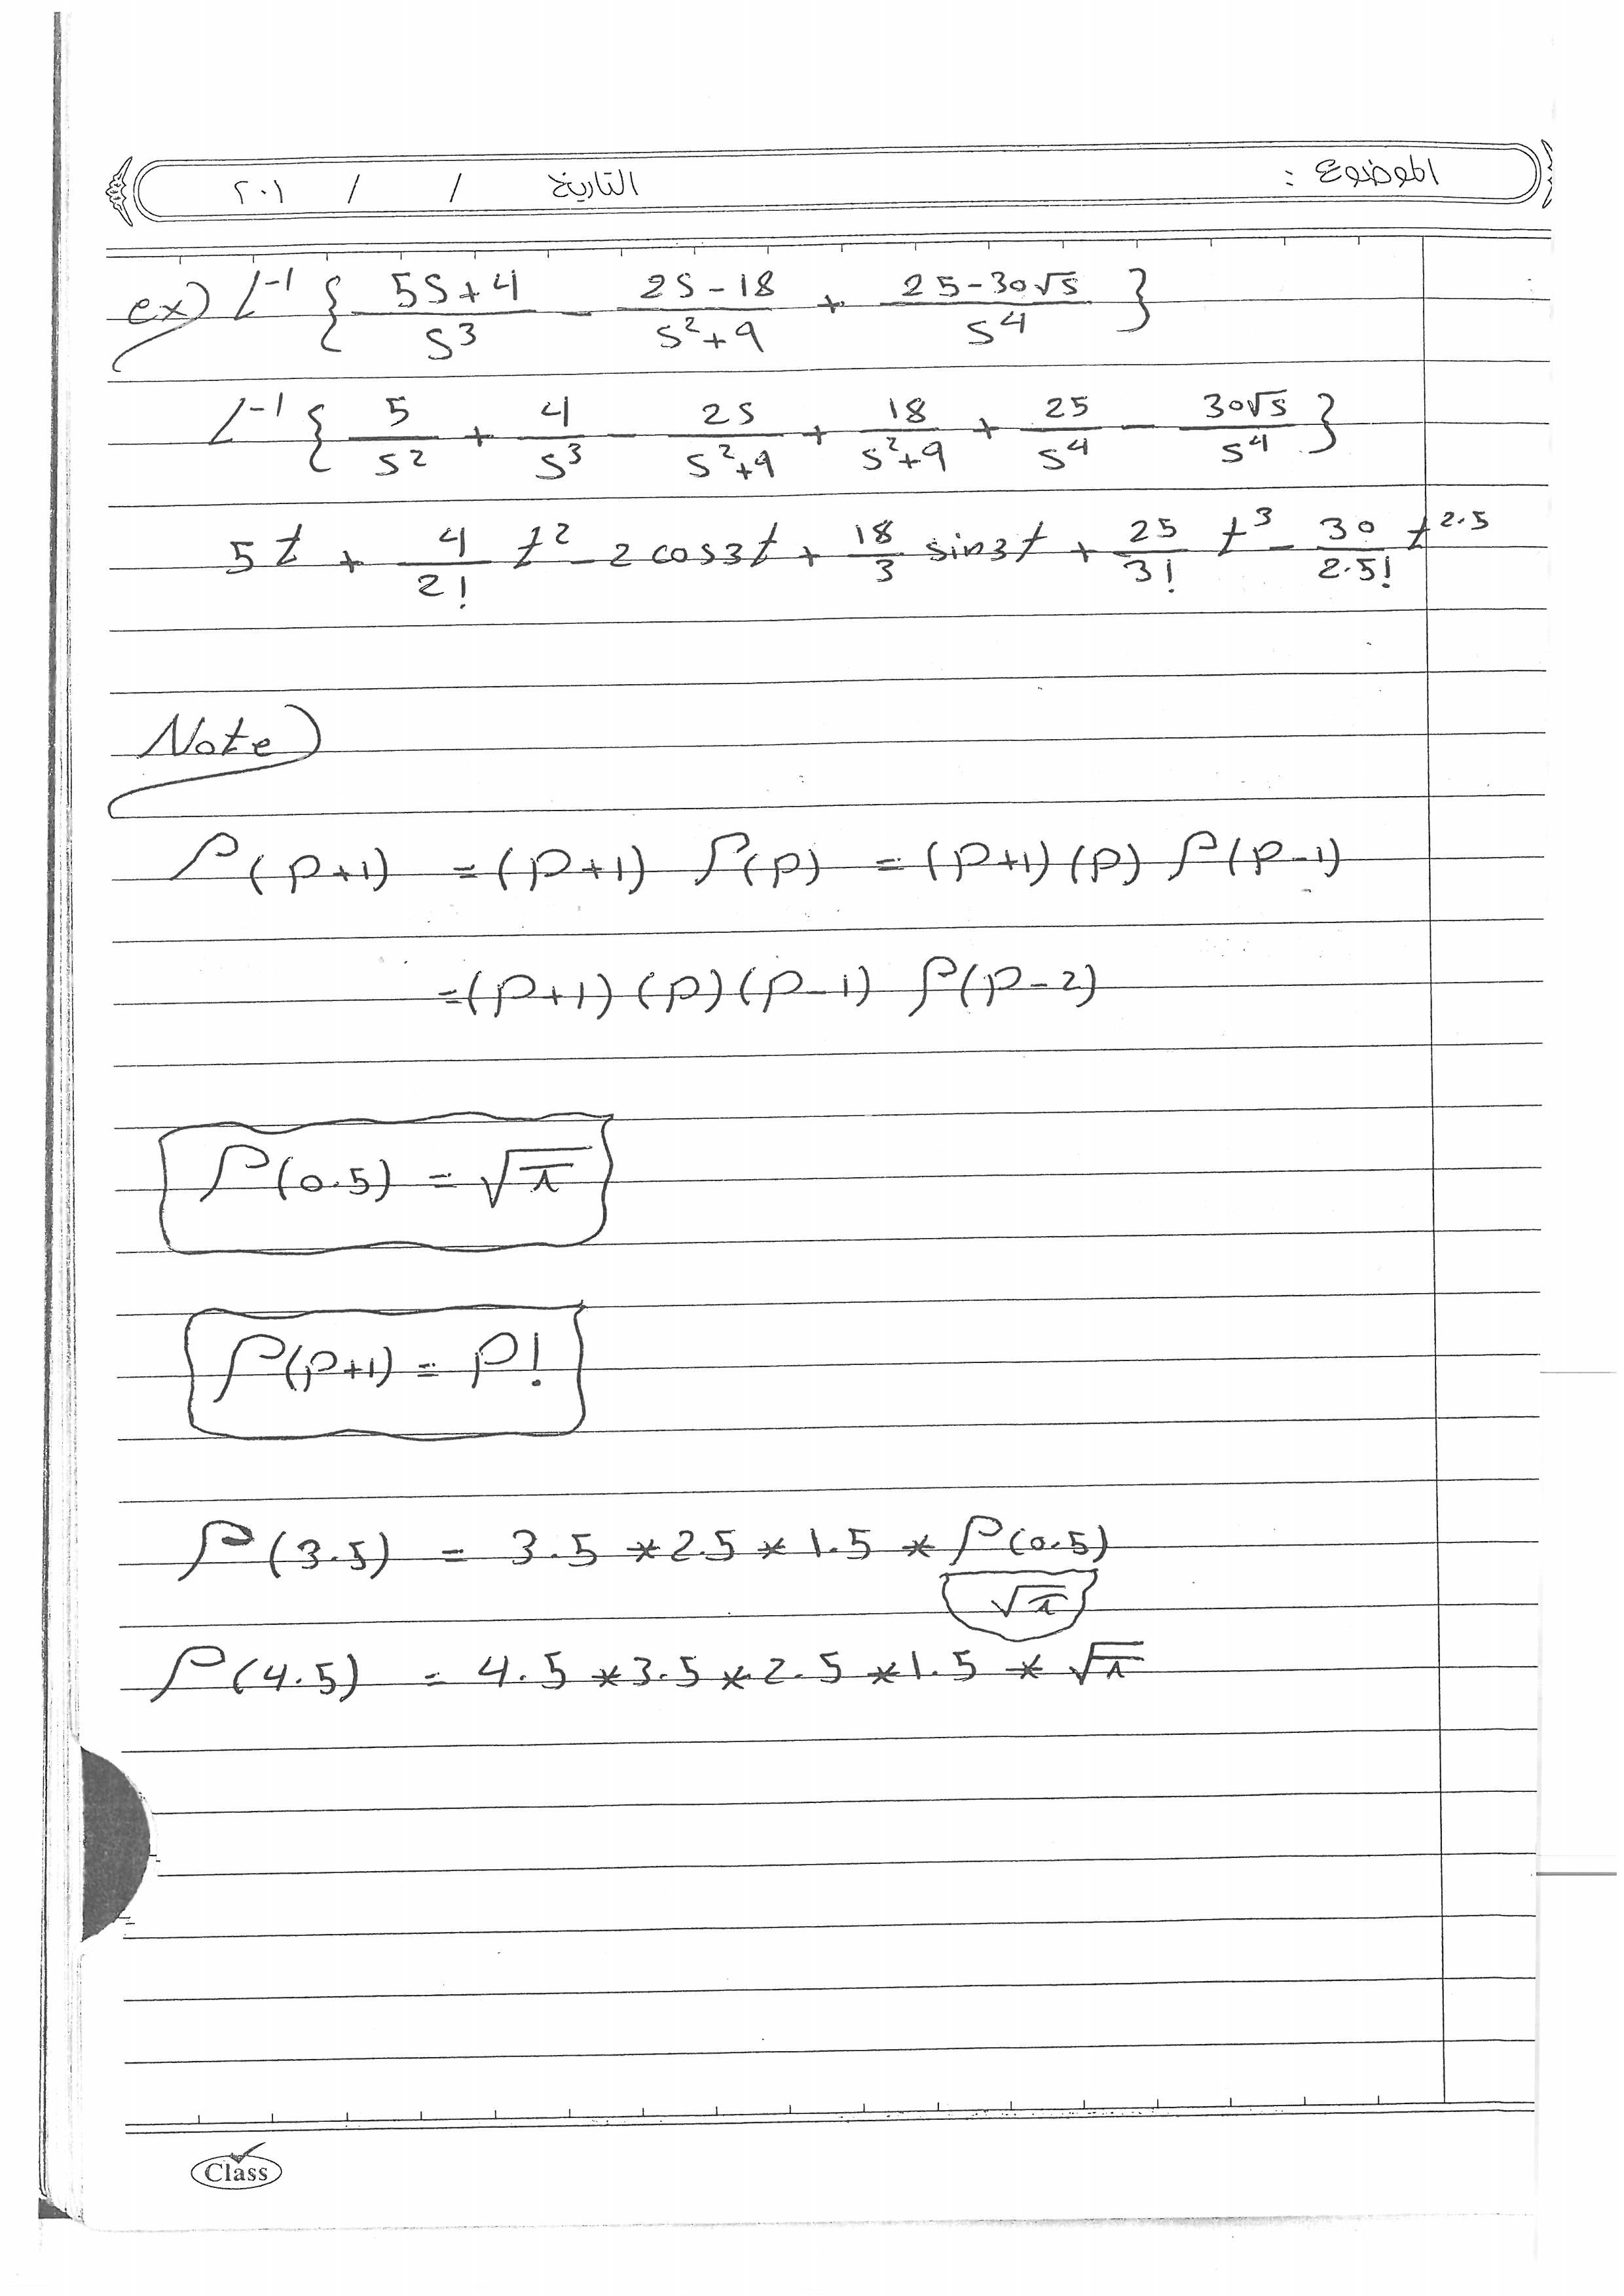 الموضوع : التاريخ / / ٢٠١
ex) L⁻¹ { (5S+4)/S³ - (2S-18)/(S²+9) + (25-30√s)/S⁴ }
L⁻¹ { 5/S² + 4/S³ - 2S/(S²+9) + 18/(S²+9) + 25/S⁴ - 30√s/S⁴ }
5t + 4/2! t² - 2cos3t + 18/3 sin3t + 25/3! t³ - 30/2.5! t^2.5
Note)
Γ(P+1) = (P+1) Γ(P) = (P+1)(P) Γ(P-1)
=(P+1)(P)(P-1) Γ(P-2)
Γ(0.5) = √π
Γ(P+1) = P!
Γ(3.5) = 3.5 * 2.5 * 1.5 * Γ(0.5)
√π
Γ(4.5) = 4.5 * 3.5 * 2.5 * 1.5 * √π
Class